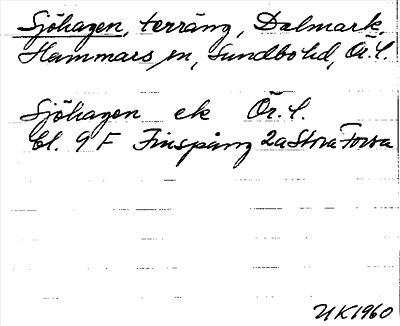 Sjöhagen, terräng, Dalmark,
Hammars sn, Sundbo hd, Ör. l.
Sjöhagen ek Ör. l.
bl. 9 F Finspång 2a Stora Forsa
UK 1960